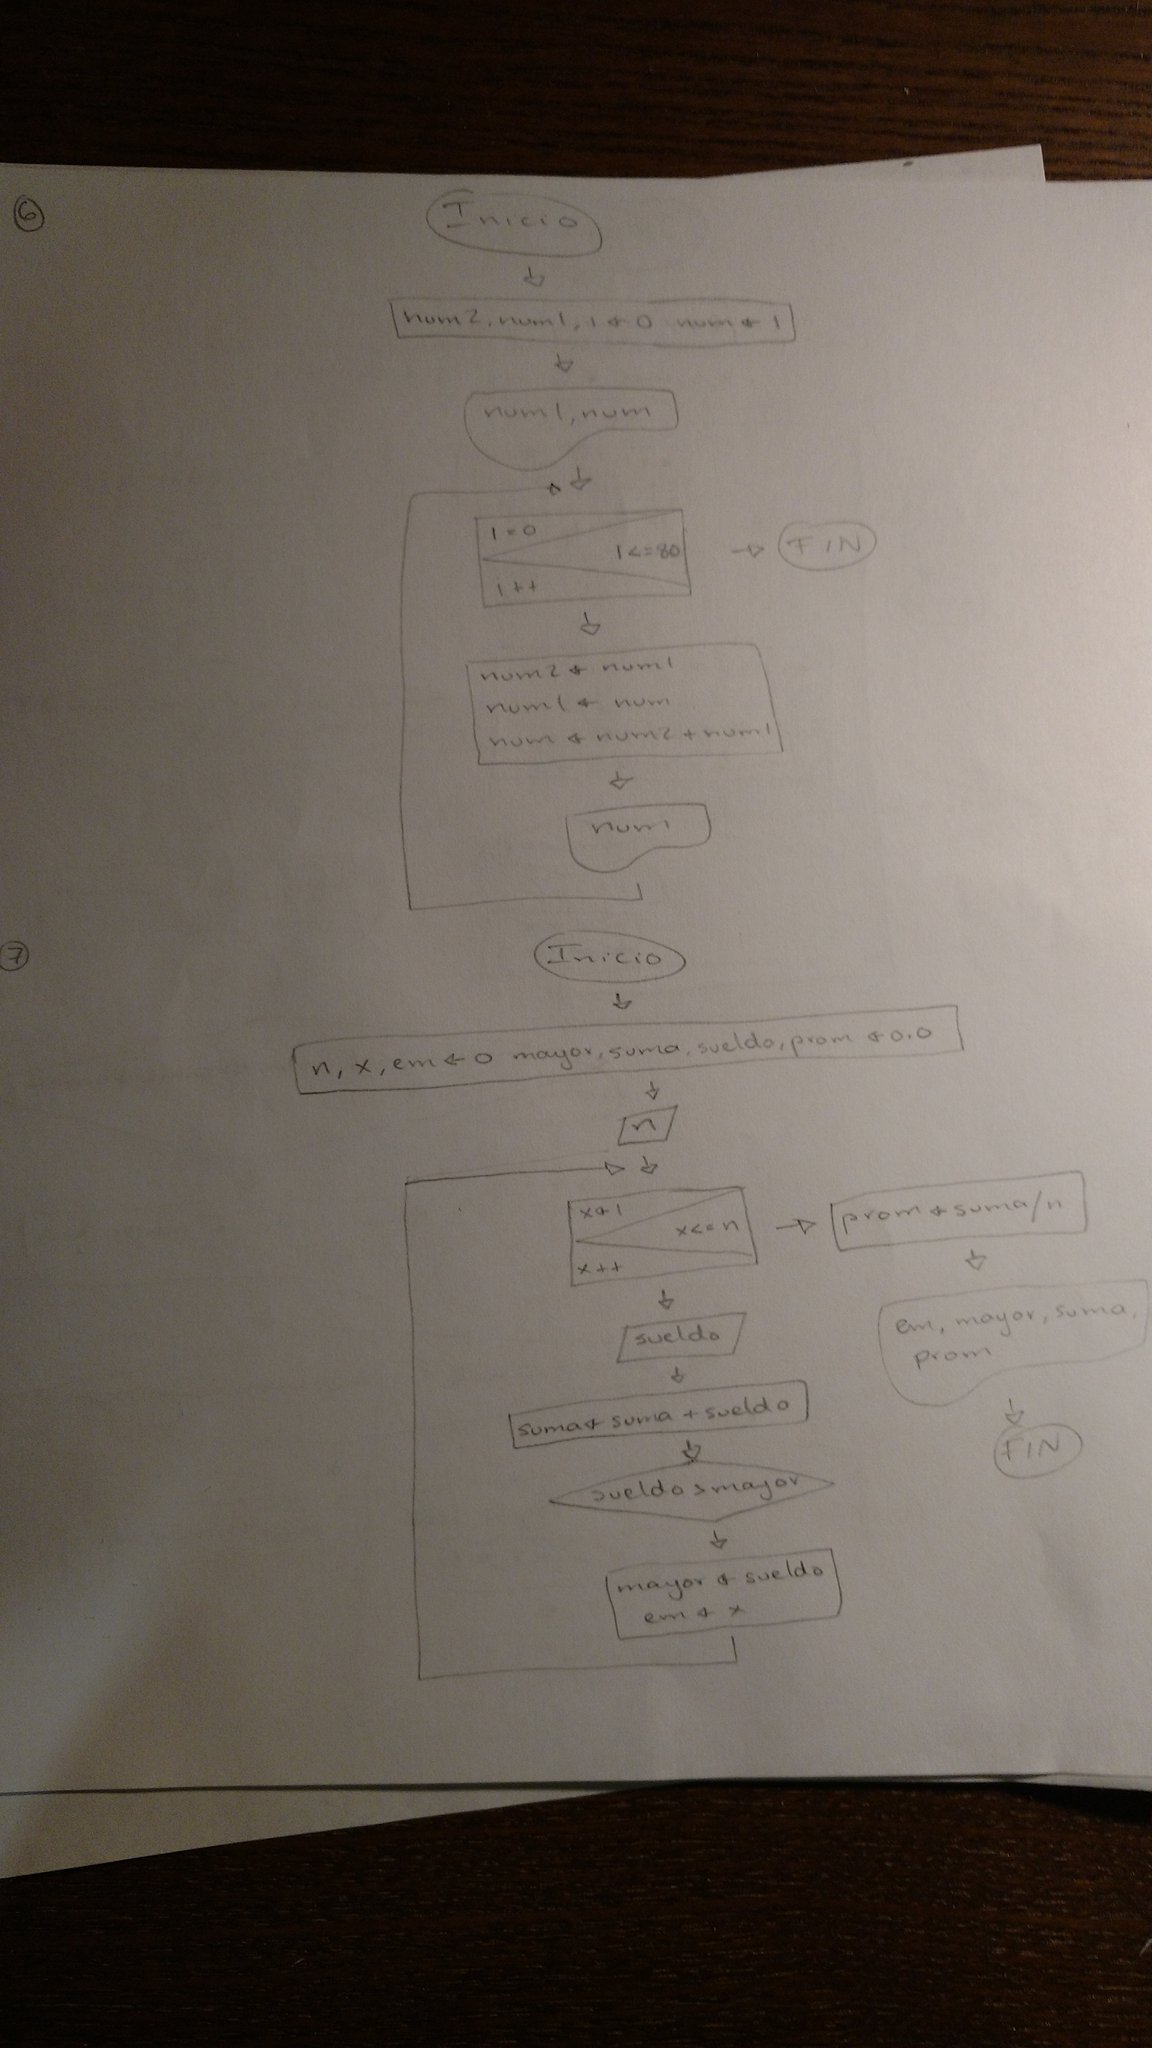 6
Inicio
num2, num1, i ← 0 num ← 1
num1, num
i = 0
i <= 80
FIN
i ++
num2 ← num1
num1 ← num
num ← num2 + num1
num
7
Inicio
n, x, em ← 0 mayor, suma, sueldo, prom ← 0.0
n
x ← 1
x <= n
x ++
prom ← suma/n
em, mayor, suma,
prom
FIN
sueldo
suma ← suma + sueldo
sueldo > mayor
mayor ← sueldo
em ← x